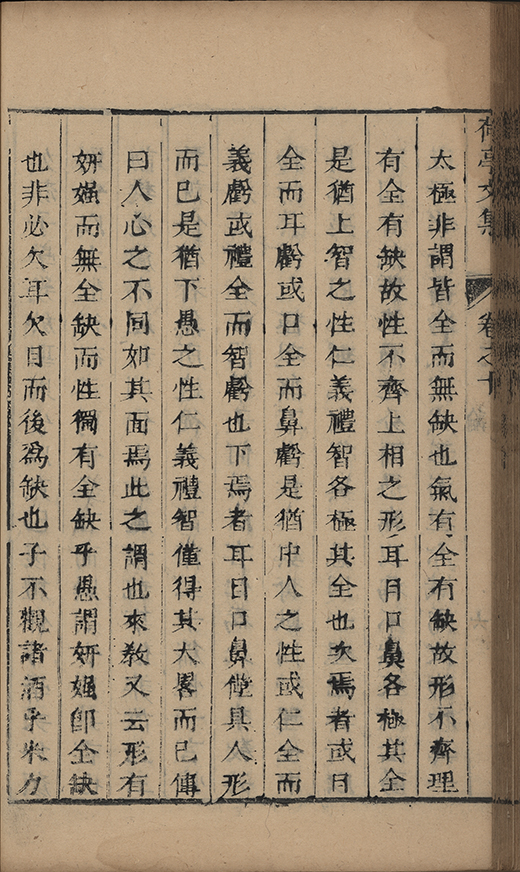 荷亭文集 卷之十
太極非謂皆全而無缺也氣有全有缺故形不齊理
有全有缺故性不齊上相之形耳目口鼻各極其全
是猶上智之性仁義禮智各極其全也次焉者或目
全而耳虧或口全而鼻虧是猶中人之性或仁全而
義虧或禮全而智虧也下焉者耳目口鼻僅具人形
而已是猶下愚之性仁義禮智僅得其大畧而已傳
曰人心之不同如其面焉此之謂也來教又云形有
妍媸而無全缺而性獨有全缺乎愚謂妍媸卽全缺
也非必欠耳欠目而後為缺也子不觀諸酒乎米力